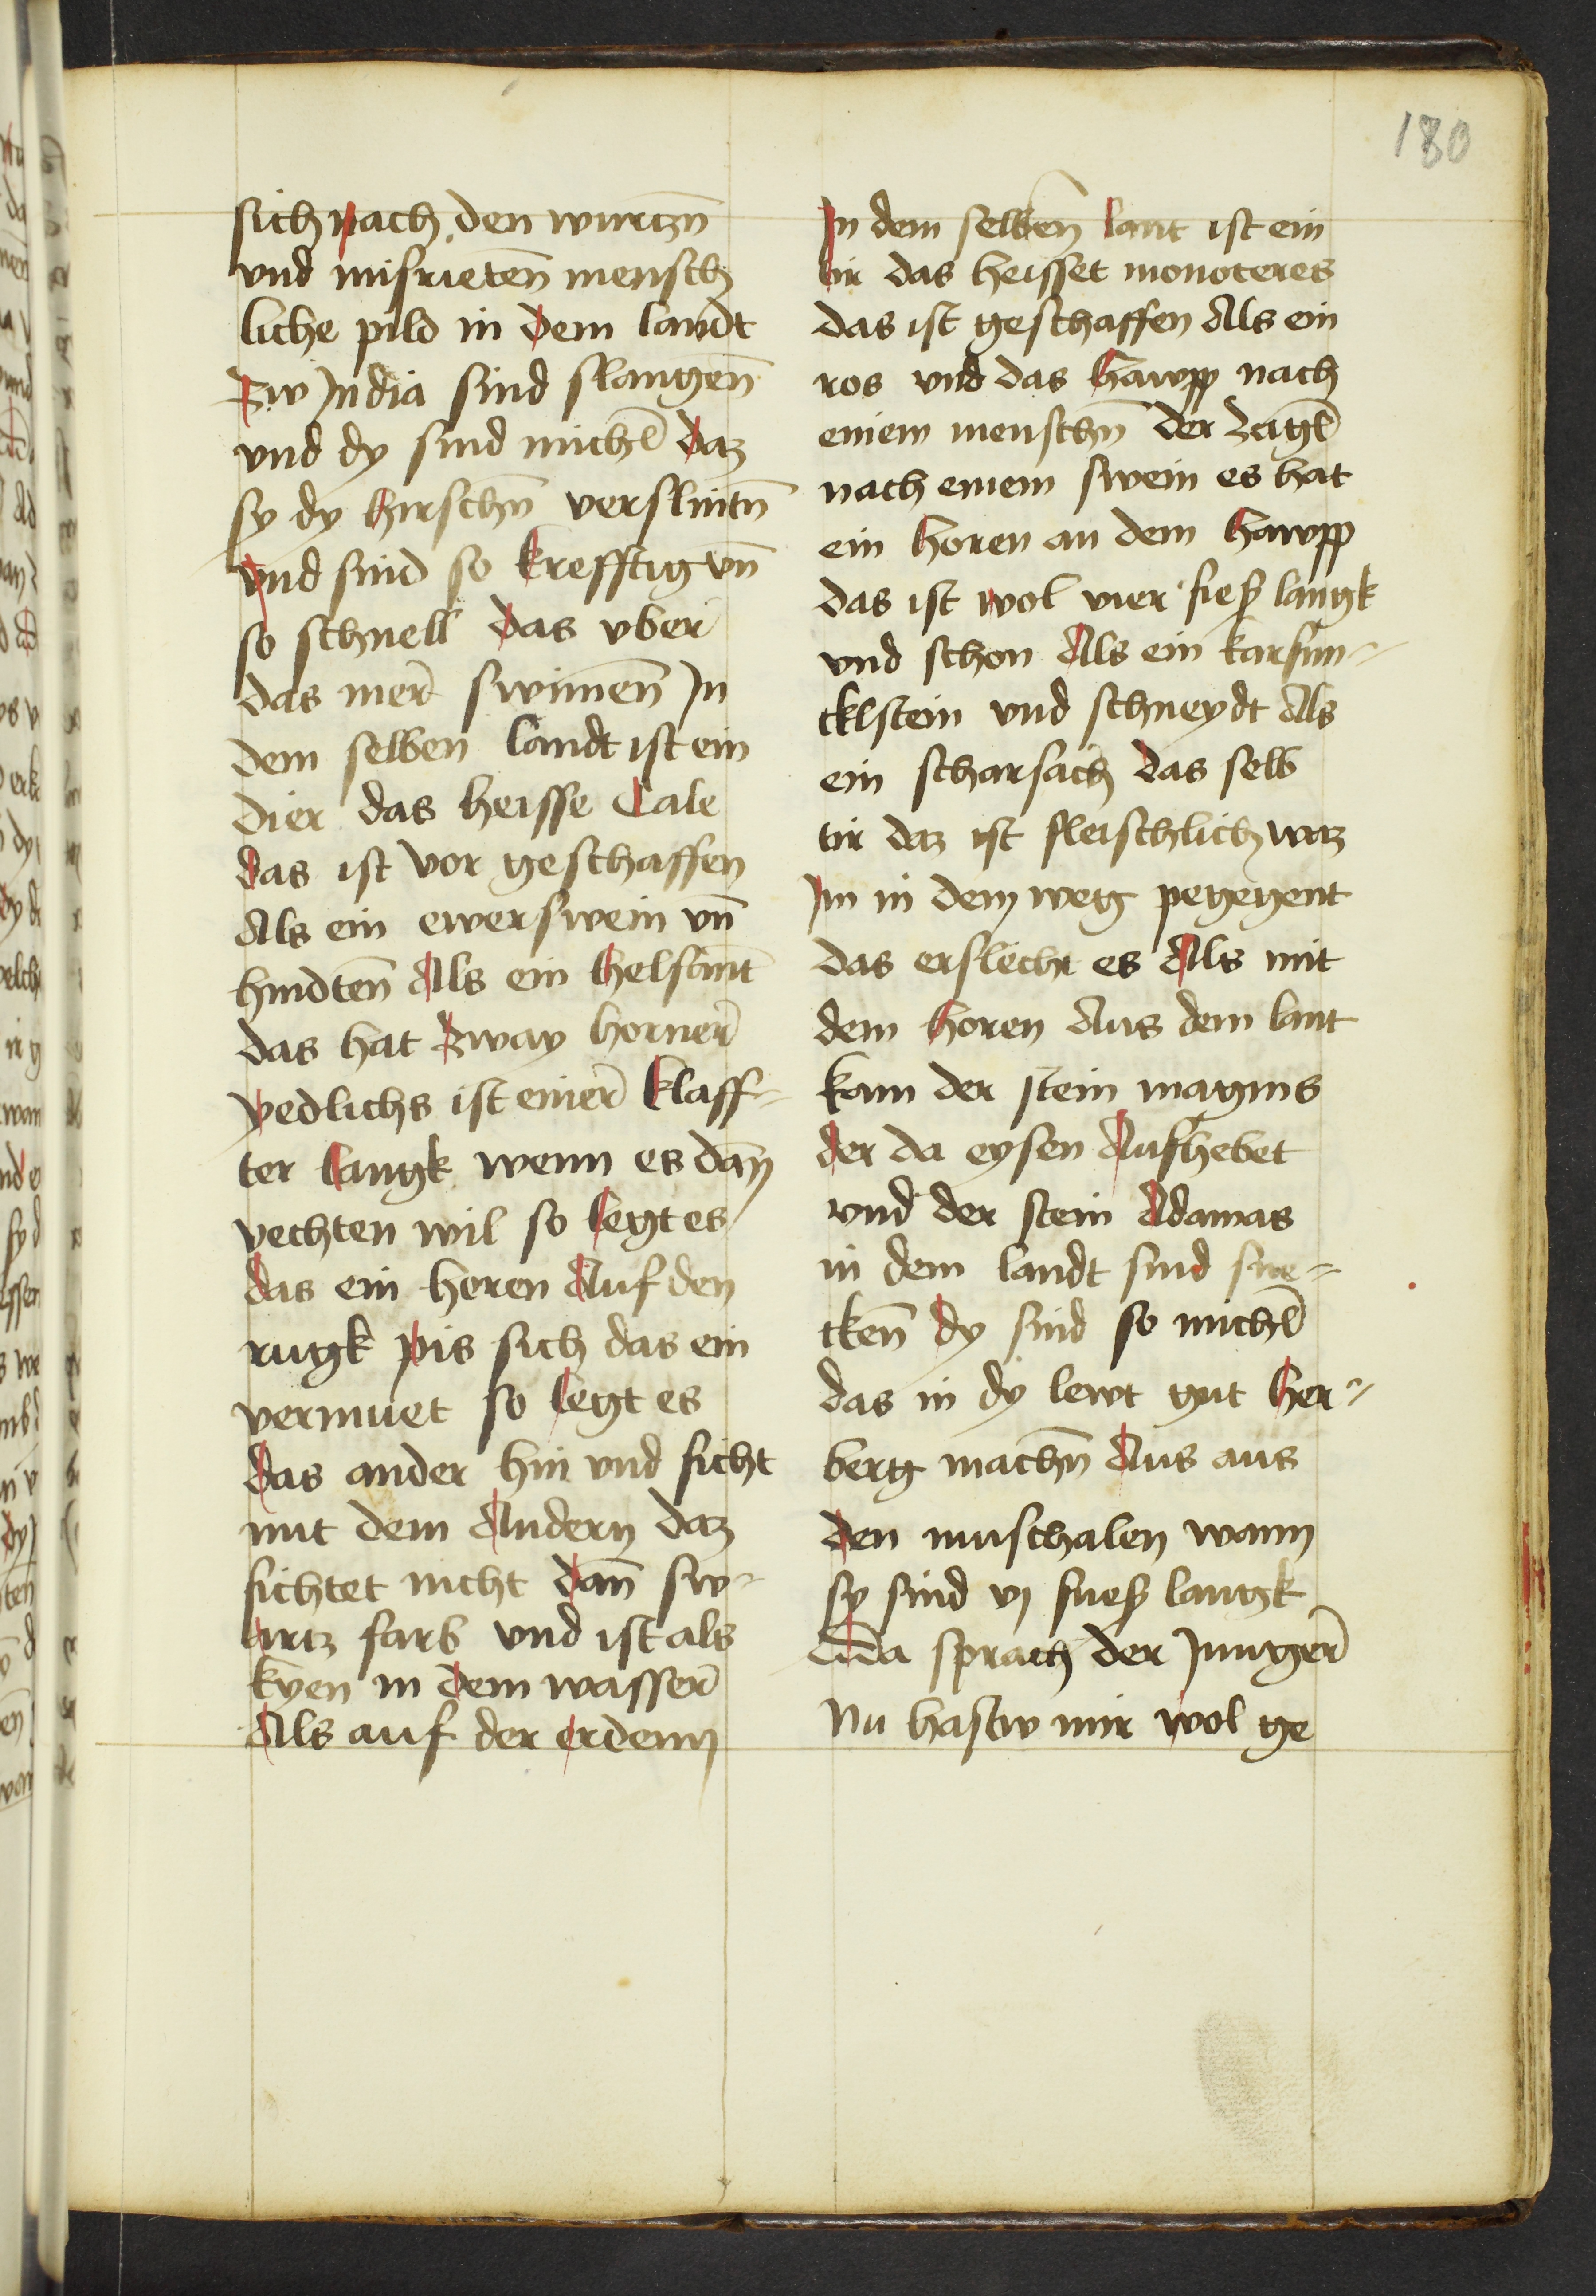 180
sich nach den wurtzn̄
vnd misrieten̄ mensch
liche pild in dem landt
Zw India sind slangen̄
vnd dy sind michl̄ daz
sy dy hirschn̄ verslintn̄
vnd sind so krefftig vn̄
so schnell das vber
das mer̄ swimen̄ In
dem selben landt ist ein
dier das heisse Cale
das ist vor geschaffen
Als ein ewerswein vn̄
hindten̄ Als ein helfant
das hat zway horner̄
yedlichs ist einer̄ klaff-
ter langk wenn es dan̄
vechten wil so legt es
das ein horen Auf den
rugk pis sich das ein
vermuet so legt es
das ander hin vnd ficht
mit dem Andern daz
fichtet nicht dan̄ sw-
artz farb vnd ist als
kven in dem wasser̄
Als auf der erdenn
In dem selben̄ lant ist ein
tir das heisset monoteres
das ist geschaffen Als ein
ros vnd das hawpp nach
einem menschn̄ der zagl̄
nach einem swein es hat
ein horen an dem hawpp
das ist wol vier fiesz langk
vnd schon Als ein karfun-
cklstein vnd schneydt Als
ein scharsach das selb
tir daz ist fleischlich waz
Im in dem weg pegegent
das erslecht es Als mit
dem horen Aus dem lant
kam der stein magnis
der da eysen Aufhebet
vnd der stein Adamas
in dem landt sind sne-
cken̄ dy sind so michl̄
das in dy lewt gut her-
berg machn̄ Aus aus
den muschalen wann
sy sind vj fuesz langk
Da sprach der Junger̄
Nu hastw mir wol ge